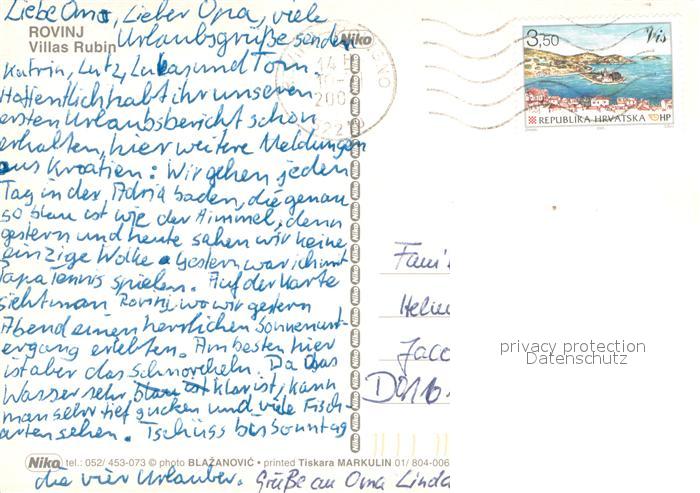 Liebe Oma, Lieber Opa, viele
ROVINJ
Villas Rubin
Urlaubsgrüße senden
Niko
Katrin, Lutz, Lukas und Tom.
Hoffentlich habt ihr unseren
ersten Urlaubsbericht schon
erhalten, hier weitere Meldungen
aus Kroatien: Wir gehen jeden
Tag in der Adria baden, die genau
so blau ist wie der Himmel, denn
gestern und heute sahen wir keine
einzige Wolke. Gestern war ich mit
Papa Tennis spielen. Auf der Karte
sieht man Rovinj, wo wir gestern
Abend einen herrlichen Sonnenunt-
ergang erlebten. Am besten hier
ist aber das Schnorcheln. Da das
Wasser sehr blau ist klar ist, kann
man sehr tief gucken und viele Fisch-
arten sehen. Tschüss bis Sonntag
die vier Urlauber. Grüße an Oma Linda
Niko tel.: 052/ 453-073 © photo BLAŽANOVIĆ • printed Tiskara MARKULIN 01/ 804-006
14
200
5222
3,50
Vis
REPUBLIKA HRVATSKA HP
Fami
Helm
Jaco
D-016
privacy protection
Datenschutz